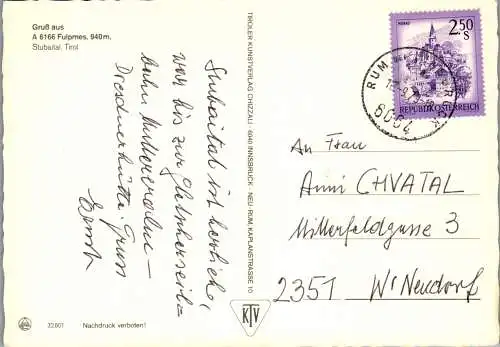 Gruß aus
A 6166 Fulpmes, 940 m,
Stubaital, Tirol
Stubaital ist herrlich,
war bis zur Gletscherseil=
bahn Mutterbergalm –
Dresdnerhütte. Gruss
Ernst
TIROLER KUNSTVERLAG CHIZZALI · 6040 INNSBRUCK · NEU RUM, KAPLANSTRASSE 10
KTV
22.601 Nachdruck verboten!
MURAU
2.50
S
REPUBLIK ÖSTERREICH
RUM
6064
An Frau
Anni CHVATAL
Mitterfeldgasse 3
2351 Wr Neudorf